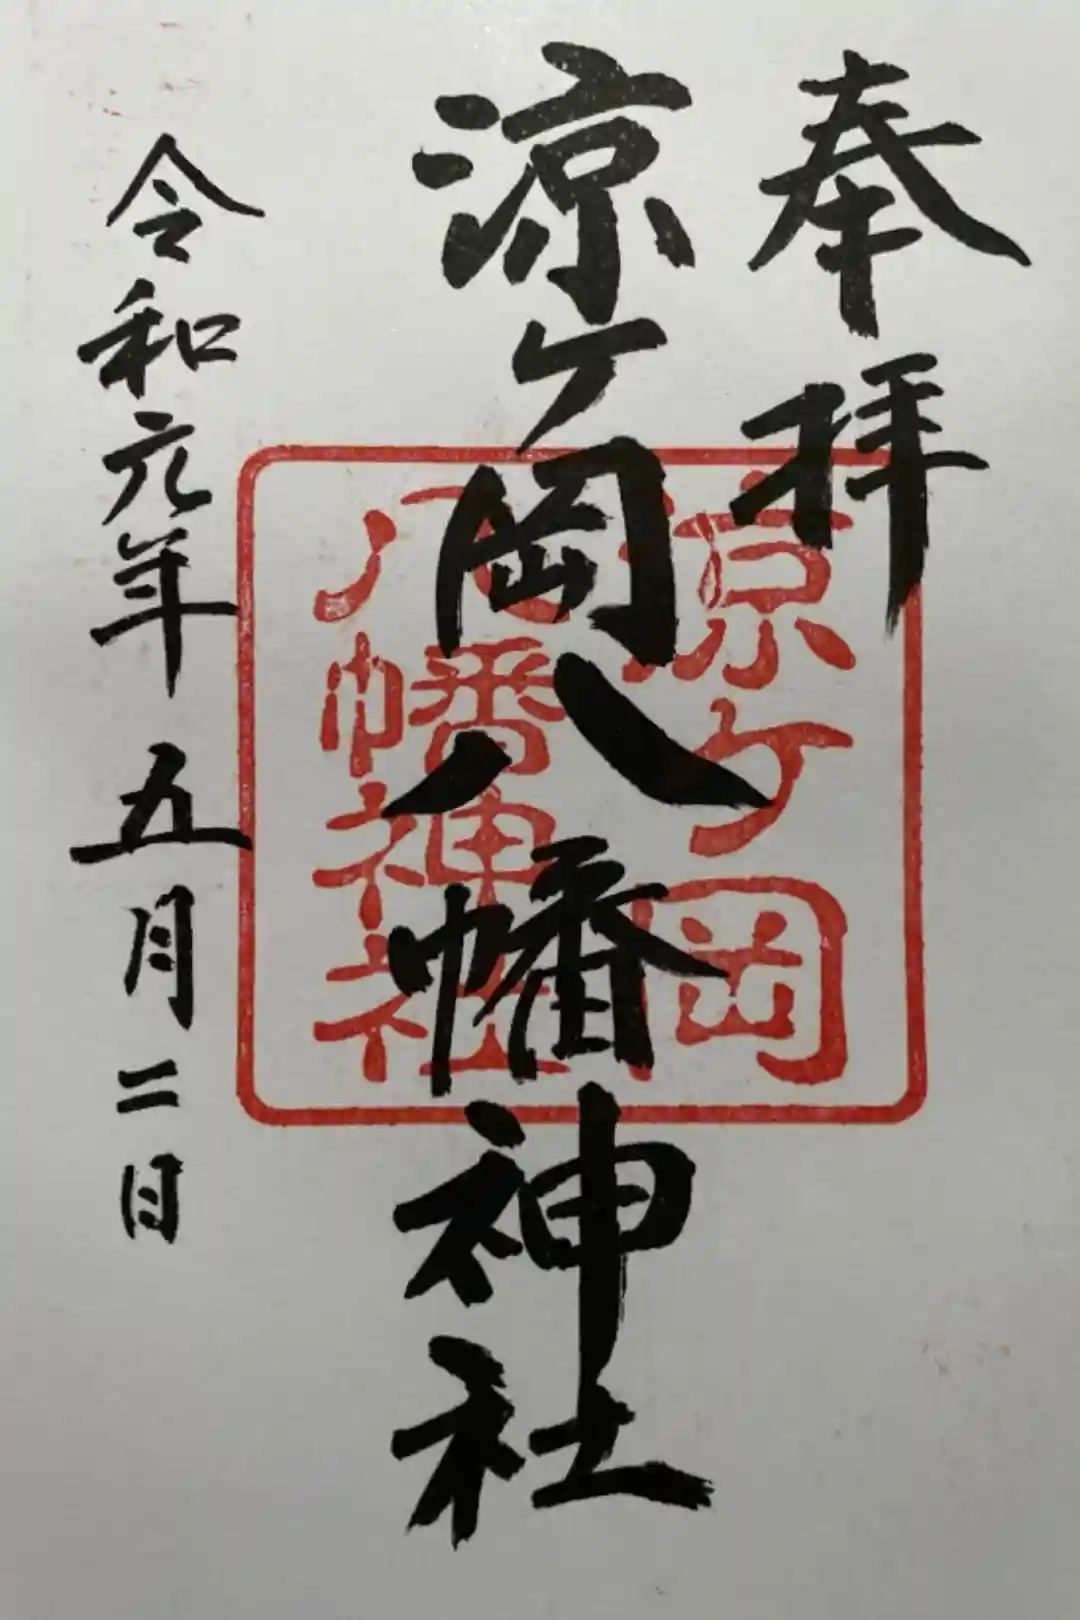 奉拝
涼ケ岡八幡神社
涼ケ岡
八幡神社
令和元年五月二日